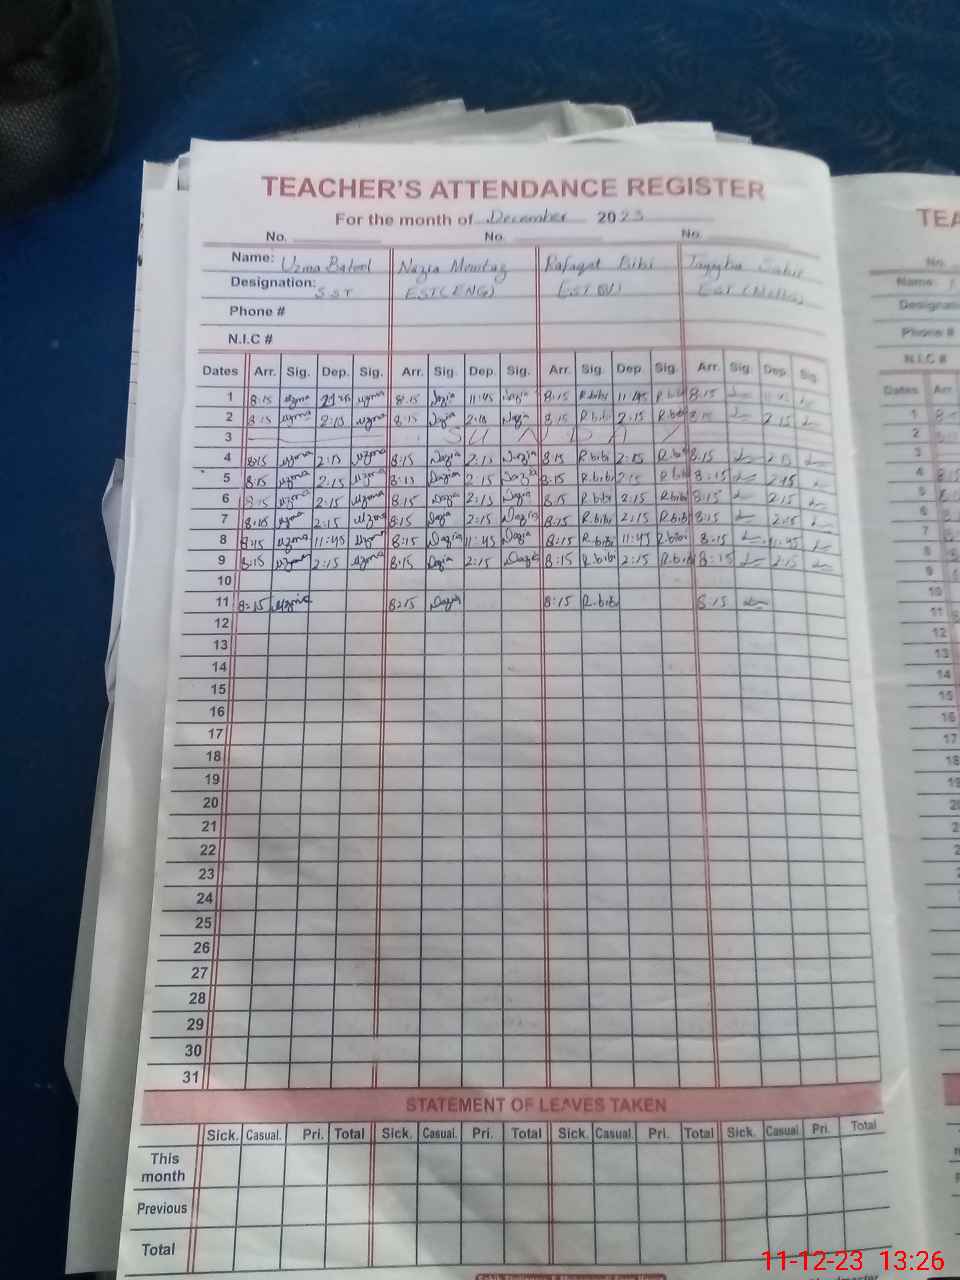 TEACHER'S ATTENDANCE REGISTER
For the month of December 2023
No. No. No.
Name: Uzma Batool Nazia Mumtaz Rafaqat Bibi Tayyba
Designation: SST EST (ENG) EST EST
Phone #
N.I.C #
Dates Arr. Sig. Dep. Sig. Arr. Sig. Dep. Sig. Arr. Sig. Dep. Sig. Arr. Sig. Dep. Sig.
1 8:15 Uzma 8:15 Nazia 11:45 Nazia 8:15 R.bibi 11:45 R.bibi 8:15 11:45
2 8:15 Uzma 2:15 Uzma 8:15 Nazia 2:15 Nazia 8:15 R.bibi 2:15 R.bibi 8:15 2:15
3 SUNDAY
4 8:15 Uzma 2:15 Uzma 8:15 Nazia 2:15 Nazia 8:15 R.bibi 2:15 R.bibi 8:15 2:15
5 8:15 Uzma 2:15 Uzma 8:15 Nazia 2:15 Nazia 8:15 R.bibi 2:15 R.bibi 8:15 2:15
6 8:15 Uzma 2:15 Uzma 8:15 Nazia 2:15 Nazia 8:15 R.bibi 2:15 R.bibi 8:15 2:15
7 8:15 Uzma 2:15 Uzma 8:15 Nazia 2:15 Nazia 8:15 R.bibi 2:15 R.bibi 8:15 2:15
8 8:15 Uzma 11:45 Uzma 8:15 Nazia 11:45 Nazia 8:15 R.bibi 11:45 R.bibi 8:15 11:45
9 8:15 Uzma 2:15 Uzma 8:15 Nazia 2:15 Nazia 8:15 R.bibi 2:15 R.bibi 8:15 2:15
10
11 8:15 Uzma 8:15 Nazia 8:15 R.bibi 8:15
12
13
14
15
16
17
18
19
20
21
22
23
24
25
26
27
28
29
30
31
STATEMENT OF LEAVES TAKEN
Sick. Casual. Pri. Total Sick. Casual. Pri. Total Sick. Casual. Pri. Total Sick. Casual. Pri. Total
This month
Previous
Total
TEA
No.
Name
Designation
Phone #
N.I.C #
Dates Arr
1
2
3
4
5
6
7
8
9
10
11
12
13
14
15
16
17
18
11-12-23 13:26